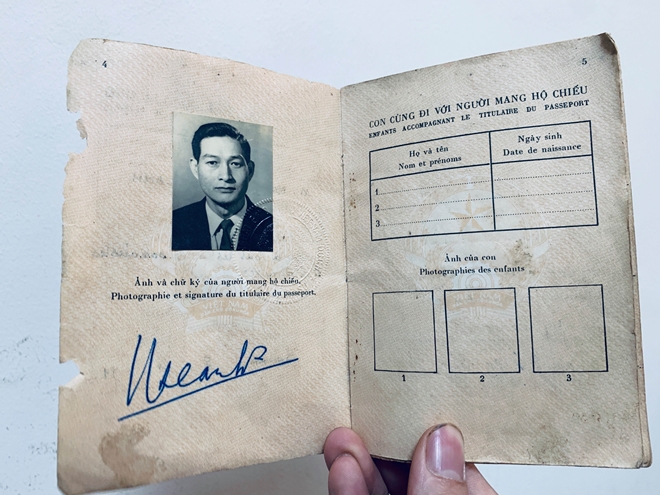 4
Ảnh và chữ ký của người mang hộ chiếu.
Photographie et signature du titulaire du passeport.
5
CON CÙNG ĐI VỚI NGƯỜI MANG HỘ CHIẾU
ENFANTS ACCOMPAGNANT LE TITULAIRE DU PASSEPORT
Họ và tên
Nom et prénoms
Ngày sinh
Date de naissance
1
2
3
Ảnh của con
Photographies des enfants
1 2 3